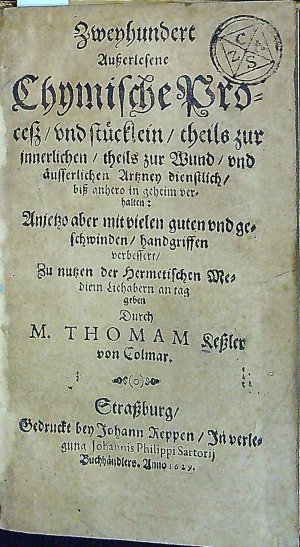 Zweyhundert
Außerlesene
Chymische Pro-
ceß / vnd stücklein / theils zur
innerlichen / theils zur Wund / vnd
äusserlichen Artzney dienstlich /
biß anhero in geheim ver-
halten:
Anjetzo aber mit vielen guten vnd ge-
schwinden / handgriffen
verbessert /
Zu nutzen der Hermetischen Me-
dicin Liebhabern an tag
geben
Durch
M. THOMAM Keßler
von Colmar.
Straßburg /
Gedruckt bey Johann Reppen / In verle-
gung Johannis Philippi Sartorij
Buchhändlers. Anno 1629.